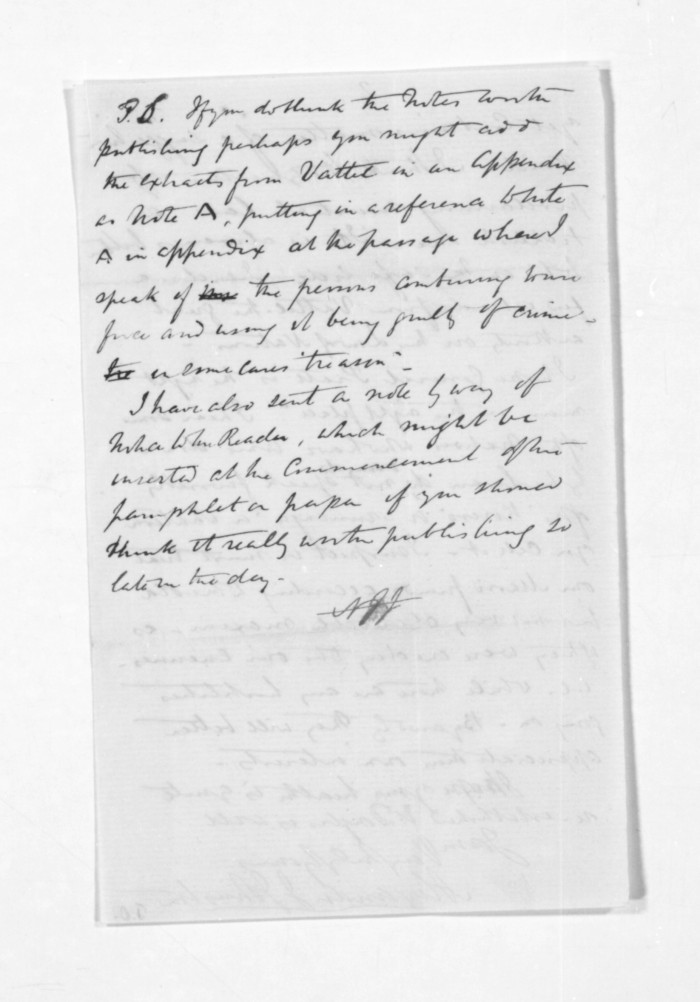 P.S. If you do think the Notes worth
publishing perhaps you might add
the extracts from Vattel in an Appendix
as Note A, putting in a reference to Note
A in appendix at the passage where I
speak of the persons combining
force and using it being guilty of crime –
in some cases "treason" –
I have also sent a note by way of
Notice to the Reader, which might be
inserted at the Commencement of the
pamphlet or paper if you should
think it really worth publishing so
late in the day –